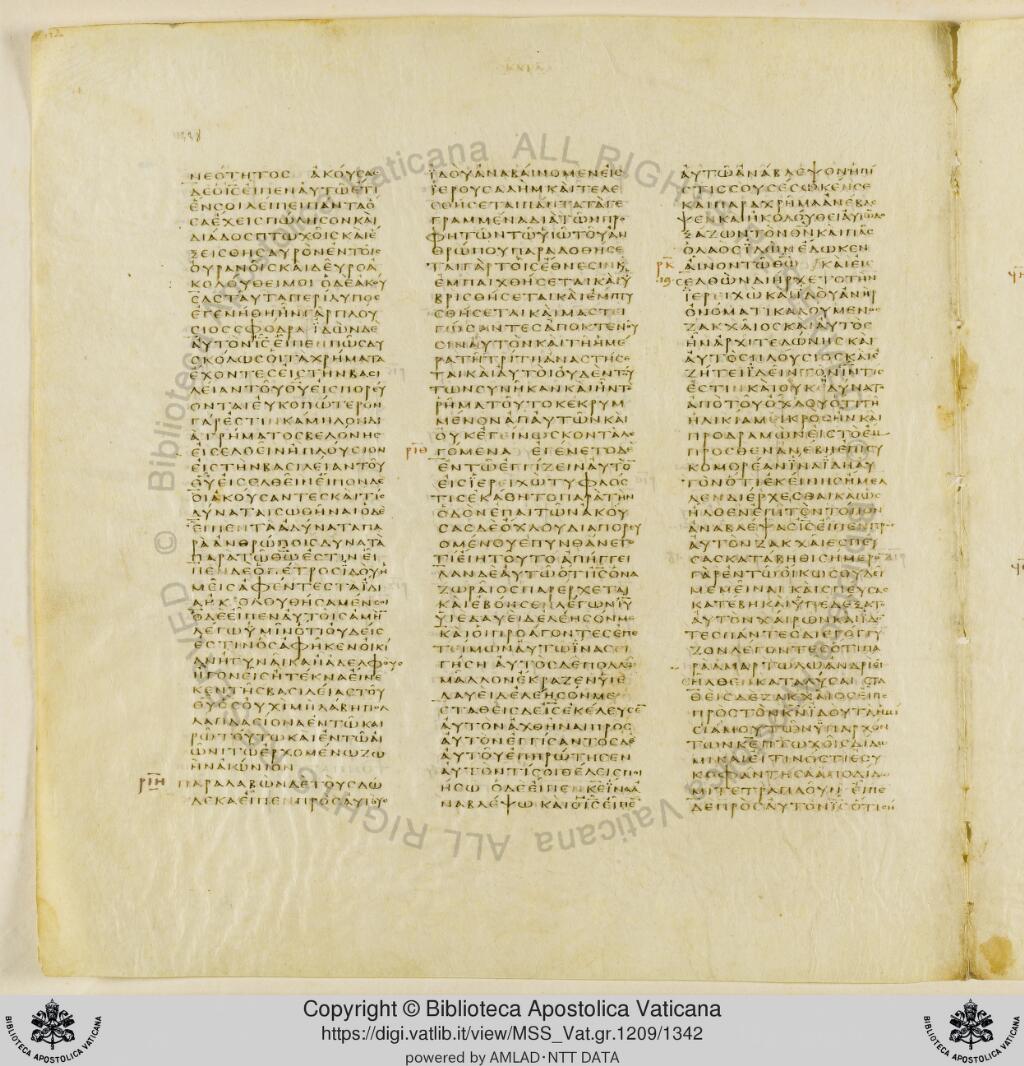 ΝΕΟΤΗΤΟϹ ΑΚΟΥϹΑϹ
ΔΕΟΙ̅Ϲ̅ΕΙΠΕΝΑΥΤΩΕΤΙ
ΕΝϹΟΙΛΕΙΠΕΙΠΑΝΤΑΟ
ϹΑΕΧΕΙϹΠΩΛΗϹΟΝΚΑΙ
ΔΙΑΔΟϹΠΤΩΧΟΙϹΚΑΙΕ
ΞΕΙϹΘΗϹΑΥΡΟΝΕΝΤΟΙϹ
ΟΥΡΑΝΟΙϹΚΑΙΔΕΥΡΟΑ
ΚΟΛΟΥΘΕΙΜΟΙ ΟΔΕΑΚΟΥ
ϹΑϹΤΑΥΤΑΠΕΡΙΛΥΠΟϹ
ΕΓΕΝΗΘΗΗΝΓΑΡΠΛΟΥ
ϹΙΟϹϹΦΟΔΡΑ ΙΔΩΝΔΕ
ΑΥΤΟΝΙ̅Ϲ̅ΕΙΠΕΝΠΩϹΔΥ
ϹΚΟΛΩϹΟΙΤΑΧΡΗΜΑΤΑ
ΕΧΟΝΤΕϹΕΙϹΤΗΝΒΑϹΙ
ΛΕΙΑΝΤΟΥΘ̅Υ̅ΕΙϹΠΟΡΕΥ
ΟΝΤΑΙΕΥΚΟΠΩΤΕΡΟΝ
ΓΑΡΕϹΤΙΝΚΑΜΗΛΟΝΔΙ
ΑΤΡΗΜΑΤΟϹΒΕΛΟΝΗϹ
ΕΙϹΕΛΘΕΙΝΗΠΛΟΥϹΙΟΝ
ΕΙϹΤΗΝΒΑϹΙΛΕΙΑΝΤΟΥ
Θ̅Υ̅ΕΙϹΕΛΘΕΙΝΕΙΠΟΝΔΕ
ΟΙΑΚΟΥϹΑΝΤΕϹΚΑΙΤΙϹ
ΔΥΝΑΤΑΙϹΩΘΗΝΑΙΟΔΕ
ΕΙΠΕΝΤΑΑΔΥΝΑΤΑΠΑ
ΡΑΑΝΘΡΩΠΟΙϹΔΥΝΑΤΑ
ΠΑΡΑΤΩΘ̅Ω̅ΕϹΤΙΝΕΙ
ΠΕΝΔΕΟΠΕΤΡΟϹΙΔΟΥΗ
ΜΕΙϹΑΦΕΝΤΕϹΤΑΙΔΙ
ΑΗΚΟΛΟΥΘΗϹΑΜΕΝϹΟΙ
ΟΔΕΕΙΠΕΝΑΥΤΟΙϹΑΜΗ
ΛΕΓΩΥΜΙΝΟΤΙΟΥΔΕΙϹ
ΕϹΤΙΝΟϹΑΦΗΚΕΝΟΙΚΙ
ΑΝΗΓΥΝΑΙΚΑΗΑΔΕΛΦΟΥϹ
ΗΓΟΝΕΙϹΗΤΕΚΝΑΕΙΝΕ
ΚΕΝΤΗϹΒΑϹΙΛΕΙΑϹΤΟΥ
Θ̅Υ̅ΟϹΟΥΧΙΜΗΛΑΒΗΠΟΛ
ΛΑΠΛΑϹΙΟΝΑΕΝΤΩΚΑΙ
ΡΩΤΟΥΤΩΚΑΙΕΝΤΩΑΙ
ΩΝΙΤΩΕΡΧΟΜΕΝΩΖΩ
ΗΝΑΙΩΝΙΟΝ
ΡΙΗ ΠΑΡΑΛΑΒΩΝΔΕΤΟΥϹΔΩ
ΔΕΚΑΕΙΠΕΝΠΡΟϹΑΥΤΟΥϹ
ΙΔΟΥΑΝΑΒΑΙΝΟΜΕΝΕΙϹ
ΙΕΡΟΥϹΑΛΗΜΚΑΙΤΕΛΕ
ϹΘΗϹΕΤΑΙΠΑΝΤΑΤΑΓΕ
ΓΡΑΜΜΕΝΑΔΙΑΤΩΝΠΡΟ
ΦΗΤΩΝΤΩΥΙΩΤΟΥΑΝ
ΘΡΩΠΟΥΠΑΡΑΔΟΘΗϹΕ
ΤΑΙΓΑΡΤΟΙϹΕΘΝΕϹΙΝΚΑΙ
ΕΜΠΑΙΧΘΗϹΕΤΑΙΚΑΙΥ
ΒΡΙϹΘΗϹΕΤΑΙΚΑΙΕΜΠΤΥ
ϹΘΗϹΕΤΑΙΚΑΙΜΑϹΤΕΙ
ΓΩϹΑΝΤΕϹΑΠΟΚΤΕΝΟΥ
ϹΙΝΑΥΤΟΝΚΑΙΤΗΗΜΕ
ΡΑΤΗΤΡΙΤΗΑΝΑϹΤΗϹΕ
ΤΑΙΚΑΙΑΥΤΟΙΟΥΔΕΝΤΟΥ
ΤΩΝϹΥΝΗΚΑΝΚΑΙΗΝΤΟ
ΡΗΜΑΤΟΥΤΟΚΕΚΡΥΜ
ΜΕΝΟΝΑΠΑΥΤΩΝΚΑΙ
ΟΥΚΕΓΕΙΝΩϹΚΟΝΤΑΛΕ
ΡΙΘ ΓΟΜΕΝΑ ΕΓΕΝΕΤΟΔΕ
ΕΝΤΩΕΓΓΙΖΕΙΝΑΥΤΟ
ΕΙϹΙΕΡΕΙΧΩΤΥΦΛΟϹ
ΤΙϹΕΚΑΘΗΤΟΠΑΡΑΤΗΝ
ΟΔΟΝΕΠΑΙΤΩΝΑΚΟΥ
ϹΑϹΔΕΟΧΛΟΥΔΙΑΠΟΡΕΥ
ΟΜΕΝΟΥΕΠΥΝΘΑΝΕΤΟ
ΤΙΕΙΗΤΟΥΤΟΑΠΗΓΓΕΙ
ΛΑΝΔΕΑΥΤΩΟΤΙΙ̅Ϲ̅ΟΝΑ
ΖΩΡΑΙΟϹΠΑΡΕΡΧΕΤΑΙ
ΚΑΙΕΒΟΗϹΕΝΛΕΓΩΝΙ̅Υ̅
ΥΙΕΔΑΥΕΙΔΕΛΕΗϹΟΝΜΕ
ΚΑΙΟΙΠΡΟΑΓΟΝΤΕϹΕΠΕ
ΤΕΙΜΩΝΑΥΤΩΙΝΑϹΕΙ
ΓΗϹΗ ΑΥΤΟϹΔΕΠΟΛΛΩ
ΜΑΛΛΟΝΕΚΡΑΖΕΝΥΙΕ
ΔΑΥΕΙΔΕΛΕΗϹΟΝΜΕ
ϹΤΑΘΕΙϹΔΕΙ̅Ϲ̅ΕΚΕΛΕΥϹΕ
ΑΥΤΟΝΑΧΘΗΝΑΙΠΡΟϹ
ΑΥΤΟΝΕΓΓΙϹΑΝΤΟϹΔΕ
ΑΥΤΟΥΕΠΗΡΩΤΗϹΕΝ
ΑΥΤΟΝΤΙϹΟΙΘΕΛΕΙϹΠΟΙ
ΗϹΩ ΟΔΕΕΙΠΕΝΚ̅Ε̅ΙΝΑΑ
ΝΑΒΛΕΨΩ ΚΑΙΟΙ̅Ϲ̅ΕΙΠΕ
ΑΥΤΩΑΝΑΒΛΕΨΟΝΗΠΙ
ϹΤΙϹϹΟΥϹΕϹΩΚΕΝϹΕ
ΚΑΙΠΑΡΑΧΡΗΜΑΑΝΕΒΛΕ
ΨΕΝΚΑΙΗΚΟΛΟΥΘΕΙΑΥΤΩΔΟ
ΞΑΖΩΝΤΟΝΘ̅Ν̅ΚΑΙΠΑϹ
ΟΛΑΟϹΙΔΩΝΕΔΩΚΕΝ
ΡΚ ΑΙΝΟΝΤΩΘ̅Ω̅ ΚΑΙΕΙϹ
19 ΕΛΘΩΝΔΙΗΡΧΕΤΟΤΗΝ
ΙΕΡΕΙΧΩΚΑΙΙΔΟΥΑΝΗΡ
ΟΝΟΜΑΤΙΚΑΛΟΥΜΕΝΟϹ
ΖΑΚΧΑΙΟϹΚΑΙΑΥΤΟϹ
ΗΝΑΡΧΙΤΕΛΩΝΗϹΚΑΙ
ΑΥΤΟϹΠΛΟΥϹΙΟϹΚΑΙΕ
ΖΗΤΕΙΙΔΕΙΝΤΟΝΙ̅Ν̅ΤΙϹ
ΕϹΤΙΝΚΑΙΟΥΚΕΔΥΝΑΤΟ
ΑΠΟΤΟΥΟΧΛΟΥΟΤΙΤΗ
ΗΛΙΚΙΑΜΕΙΚΡΟϹΗΝΚΑΙ
ΠΡΟΔΡΑΜΩΝΕΙϹΤΟΕΜ
ΠΡΟϹΘΕΝΑΝΕΒΗΕΠΙϹΥ
ΚΟΜΟΡΕΑΝΙΝΑΙΔΗΑΥ
ΤΟΝΟΤΙΕΚΕΙΝΗϹΗΜΕΛ
ΛΕΝΔΙΕΡΧΕϹΘΑΙΚΑΙΩϹ
ΗΛΘΕΝΕΠΙΤΟΝΤΟΠΟΝ
ΑΝΑΒΛΕΨΑϹΙ̅Ϲ̅ΕΙΠΕΝΠΡΟϹ
ΑΥΤΟΝΖΑΚΧΑΙΕϹΠΕΥ
ϹΑϹΚΑΤΑΒΗΘΙϹΗΜΕΡΟΝ
ΓΑΡΕΝΤΩΟΙΚΩϹΟΥΔΕΙ
ΜΕΜΕΙΝΑΙΚΑΙϹΠΕΥϹΑϹ
ΚΑΤΕΒΗΚΑΙΥΠΕΔΕΞΑΤΟ
ΑΥΤΟΝΧΑΙΡΩΝΚΑΙΙΔΟ
ΤΕϹΠΑΝΤΕϹΔΙΕΓΟΓΓΥ
ΖΟΝΛΕΓΟΝΤΕϹΟΤΙΠΑ
ΡΑΑΜΑΡΤΩΛΩΑΝΔΡΙΕΙ
ϹΗΛΘΕΝΚΑΤΑΛΥϹΑΙ ϹΤΑ
ΘΕΙϹΔΕΖΑΚΧΑΙΟϹΕΙΠΕ
ΠΡΟϹΤΟΝΚ̅Ν̅ΙΔΟΥΤΑΗΜΙ
ϹΙΑΜΟΥΤΩΝΥΠΑΡΧΟΝ
ΤΩΝΚ̅Ε̅ΠΤΩΧΟΙϹΔΙΔΩ
ΜΙΚΑΙΕΙΤΙΝΟϹΤΙΕϹΥ
ΚΟΦΑΝΤΗϹΑΑΠΟΔΙΔΩ
ΜΙΤΕΤΡΑΠΛΟΥΝ ΕΙΠΕ
ΔΕΠΡΟϹΑΥΤΟΝΙ̅Ϲ̅ΟΤΙϹΗ
Copyright © Biblioteca Apostolica Vaticana
https://digi.vatlib.it/view/MSS_Vat.gr.1209/1342
powered by AMLAD·NTT DATA